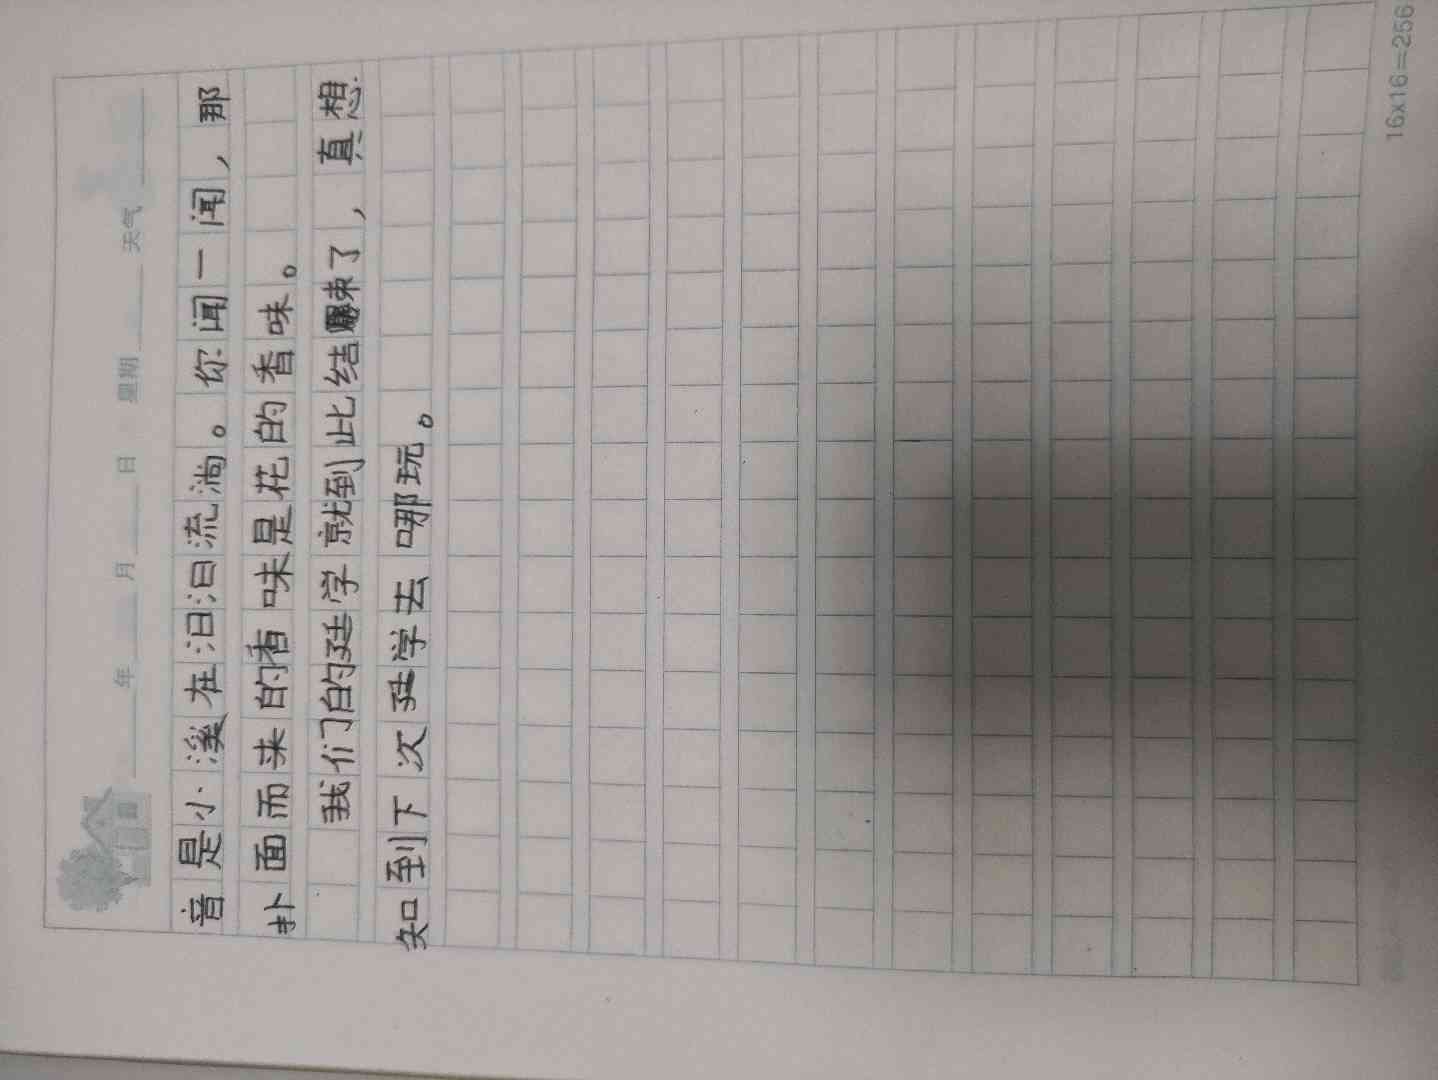 年 月 日 星期 天气
音是小溪在汩汩流淌。你闻一闻，那
扑面而来的香味是花的香味。
我们的廷学就到此结束了，真想
知到下次廷学去哪玩。
16x16=256